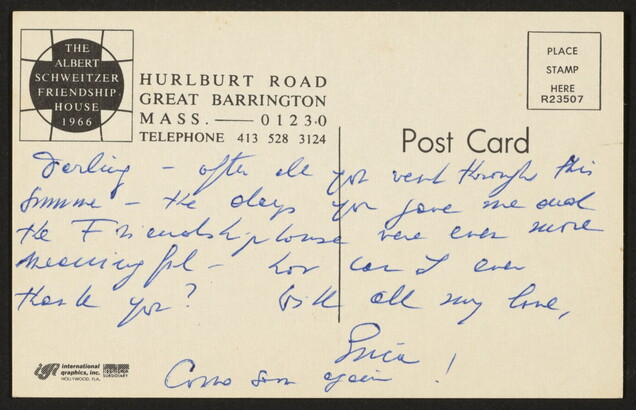 THE
ALBERT
SCHWEITZER
FRIENDSHIP
HOUSE
1966
HURLBURT ROAD
GREAT BARRINGTON
MASS. — 01230
TELEPHONE 413 528 3124
PLACE
STAMP
HERE
R23507
Post Card
Darling - after all you went through this
Summer - the days you gave me and
the Friendship house were even more
meaningful - how can I ever
thank you? With all my love,
Come soon again!
igi international
graphics, inc.
HOLLYWOOD, FLA.
SUBSIDIARY